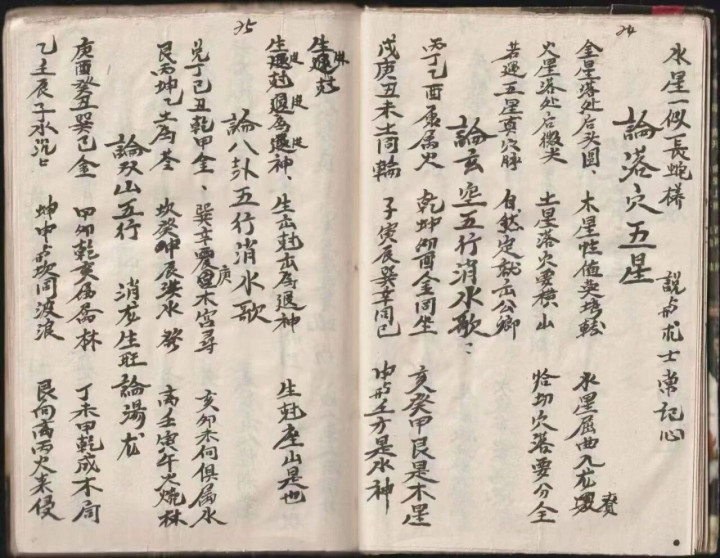 水星一似長蛇樣 説與求士常記心
論落穴五星
金星落处后头圆、 木星性值無培転 水星屈曲九龙
火星落处后微尖 土星落穴要横山 恰切穴落要分全
若遇五星真穴脉 自然定敨出公卿
論玄空五行消水歌：
丙丁乙酉原属火 乾坤卯酉金同坐 亥癸甲艮是木星
戊庚丑未土同輪 子寅辰巽辛同巳 申與壬方是水神
24
25
生進尅
生進尅進為進神、 生出尅出為退神 生尅座山是也
論八卦五行消水歌
兑丁巳丑乾甲金、 巽辛庚木宫尋 亥卯未向俱属水
艮丙坤乙土為 坎癸申辰洪水發 离壬寅午火燒林
論双山五行 消龙生旺論湯龙
庚酉癸丑巽巳金 甲卯乾亥属 林 丁未甲乾成木局
乙壬辰子水沉沉 坤申與坎同波浪 艮向离丙火来侵